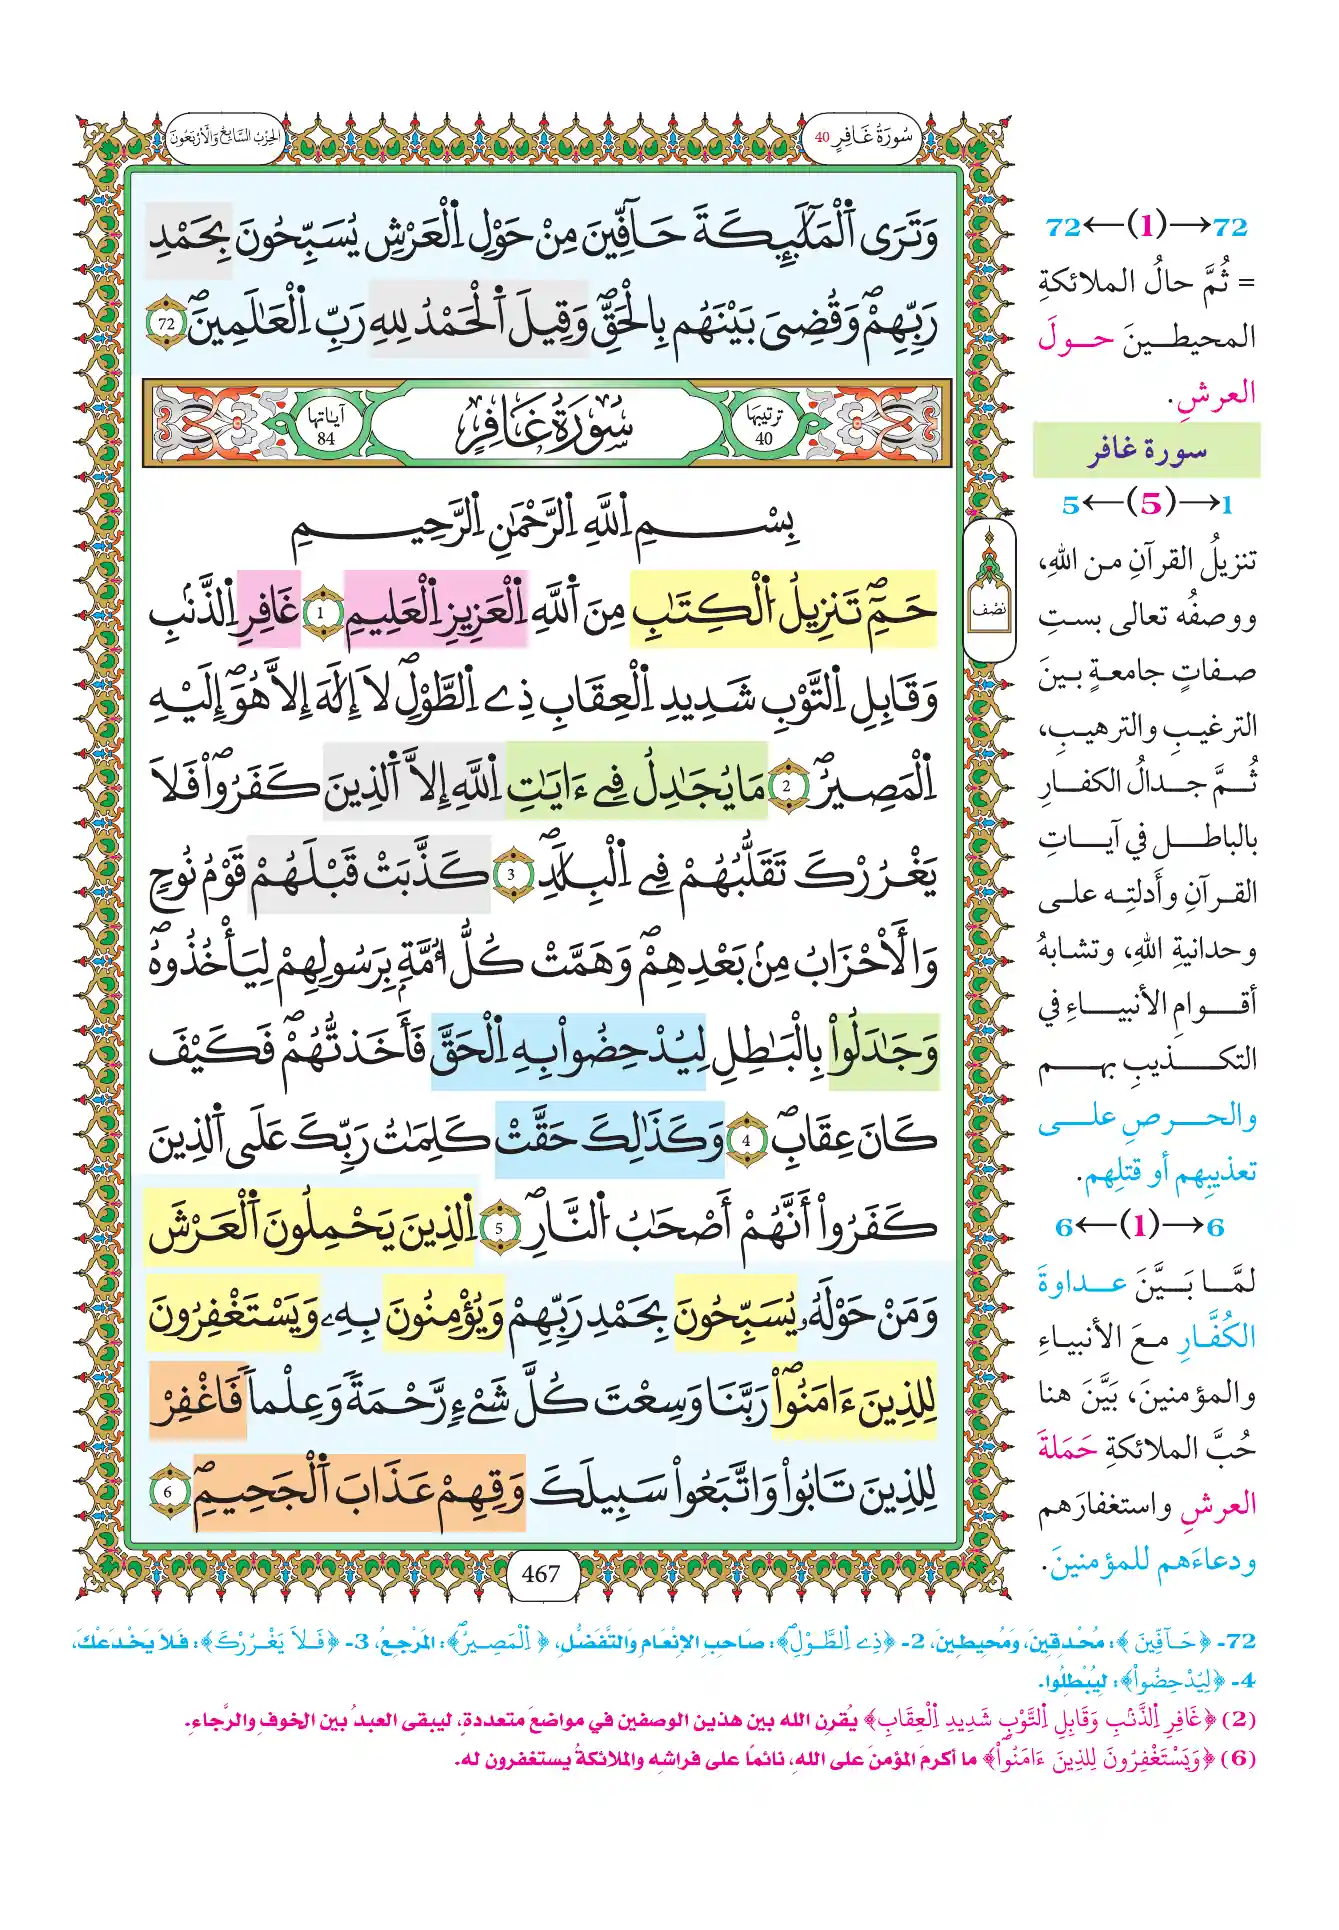 سُورَةُ غَافِرٍ 40
الحِزْبُ السَّابِعُ وَالْأَرْبَعُونَ
وَتَرَى اَ۬لْمَلَٰٓئِكَةَ حَآفِّينَ مِنْ حَوْلِ اِ۬لْعَرْشِ يُسَبِّحُونَ بِحَمْدِ
رَبِّهِمْۖ وَقُضِىَ بَيْنَهُم بِالْحَقِّۖ وَقِيلَ اَ۬لْحَمْدُ لِلهِ رَبِّ اِ۬لْعَٰلَمِينَۖ 72
ترتيبها 40
سُورَةُ غَافِرٍ
آياتها 84
بِسْمِ اِ۬للَّهِ اِ۬لرَّحْمَٰنِ اِ۬لرَّحِيمِ
حَمِٓۖ تَنزِيلُ اُ۬لْكِتَٰبِ مِنَ اَ۬للَّهِ اِ۬لْعَزِيزِ اِ۬لْعَلِيمِ 1 غَافِرِ اِ۬لذَّنۢبِ
وَقَابِلِ اِ۬لتَّوْبِ شَدِيدِ اِ۬لْعِقَابِ ذِے اِ۬لطَّوْلِۖ لَآ إِلَٰهَ إِلَّا هُوَۖ إِلَيْهِ
اِ۬لْمَصِيرُۖ 2 مَا يُجَٰدِلُ فِےٓ ءَايَٰتِ اِ۬للَّهِ إِلَّا اَ۬لذِينَ كَفَرُواْۖ فَلَا
يَغْرُرْكَ تَقَلُّبُهُمْ فِے اِ۬لْبِلَٰدِۖ 3 كَذَّبَتْ قَبْلَهُمْ قَوْمُ نُوحٍ
وَالْأَحْزَابُ مِنۢ بَعْدِهِمْۖ وَهَمَّتْ كُلُّ أُمَّةِۢ بِرَسُولِهِمْ لِيَأْخُذُوهُۖ
وَجَٰدَلُواْ بِالْبَٰطِلِ لِيُدْحِضُواْ بِهِ اِ۬لْحَقَّ فَأَخَذتُّهُمْۖ فَكَيْفَ
كَانَ عِقَابِۖ 4 وَكَذَٰلِكَ حَقَّتْ كَلِمَٰتُ رَبِّكَ عَلَى اَ۬لذِينَ
كَفَرُوٓاْ أَنَّهُمْ أَصْحَٰبُ اُ۬لنَّارِۖ 5 اِ۬لذِينَ يَحْمِلُونَ اَ۬لْعَرْشَ
وَمَنْ حَوْلَهُۥ يُسَبِّحُونَ بِحَمْدِ رَبِّهِمْ وَيُؤْمِنُونَ بِهِۦ وَيَسْتَغْفِرُونَ
لِلذِينَ ءَامَنُواْۖ رَبَّنَا وَسِعْتَ كُلَّ شَےْءٖ رَّحْمَةٗ وَعِلْماٗ فَاغْفِرْ
لِلذِينَ تَابُواْ وَاتَّبَعُواْ سَبِيلَكَ وَقِهِمْ عَذَابَ اَ۬لْجَحِيمِۖ 6
نصف
467
72←(1)→72
= ثُمَّ حالُ الملائكةِ
المحيطينَ حولَ
العرشِ.
سورة غافر
5←(5)→1
تنزيلُ القرآنِ من اللهِ،
ووصفُه تعالى بستِ
صفاتٍ جامعةٍ بينَ
الترغيبِ والترهيبِ،
ثُمَّ جدالُ الكفارِ
بالباطلِ في آياتِ
القرآنِ وأدلتِه على
وحدانيةِ اللهِ، وتشابهُ
أقوامِ الأنبياءِ في
التكذيبِ بهم
والحرصِ على
تعذيبِهم أو قتلِهم.
6←(1)→6
لمَّا بَيَّنَ عداوةَ
الكُفَّارِ معَ الأنبياءِ
والمؤمنينَ، بَيَّنَ هنا
حُبَّ الملائكةِ حَمَلةَ
العرشِ واستغفارَهم
ودعاءَهم للمؤمنينَ.
72- ﴿حَآفِّينَ﴾: مُحْدِقِينَ، وَمُحِيطِينَ، 2- ﴿ذِے اِ۬لطَّوْلِۖ﴾: صَاحِبِ الإِنْعَامِ وَالتَّفَضُّلِ، ﴿اِ۬لْمَصِيرُۖ﴾: المَرْجِعُ، 3- ﴿فَلَا يَغْرُرْكَ﴾: فَلَا يَخْدَعْكَ،
4- ﴿لِيُدْحِضُواْ﴾: لِيُبْطِلُوا.
(2) ﴿غَافِرِ اِ۬لذَّنۢبِ وَقَابِلِ اِ۬لتَّوْبِ شَدِيدِ اِ۬لْعِقَابِ﴾ يُقرِن الله بين هذين الوصفين في مواضعَ متعددةٍ، ليبقى العبدُ بين الخوفِ والرَّجاءِ.
(6) ﴿وَيَسْتَغْفِرُونَ لِلذِينَ ءَامَنُواْۖ﴾ ما أكرمَ المؤمنَ على اللهِ، نائمًا على فراشِه والملائكةُ يستغفرون له.